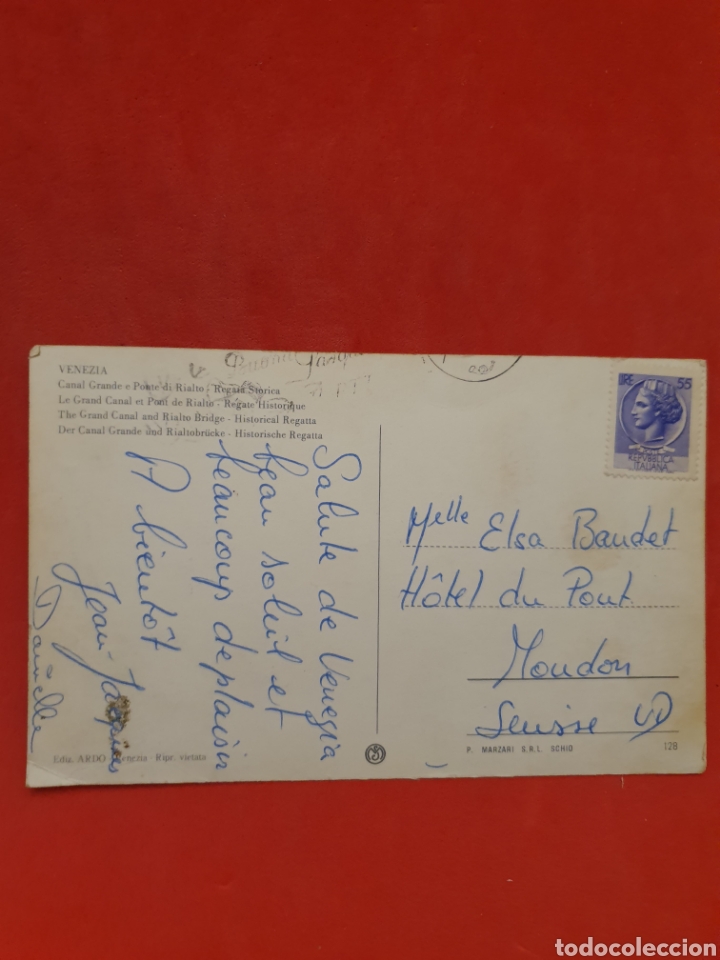 VENEZIA
Canal Grande e Ponte di Rialto - Regata Storica
Le Grand Canal et Pont de Rialto - Regate Historique
The Grand Canal and Rialto Bridge - Historical Regatta
Der Canal Grande und Rialtobrücke - Historische Regatta
Salute de Venezia
beau soleil et
beaucoup de plaisir
A bientôt
Jean-Jacques
Danielle
LIRE 55
REPVBBLICA
ITALIANA
Melle Elsa Baudet
Hôtel du Pont
Moudon
Suisse VD
Ediz. ARDO Venezia - Ripr. vietata
P. MARZARI S.R.L. SCHIO
128
todocoleccion